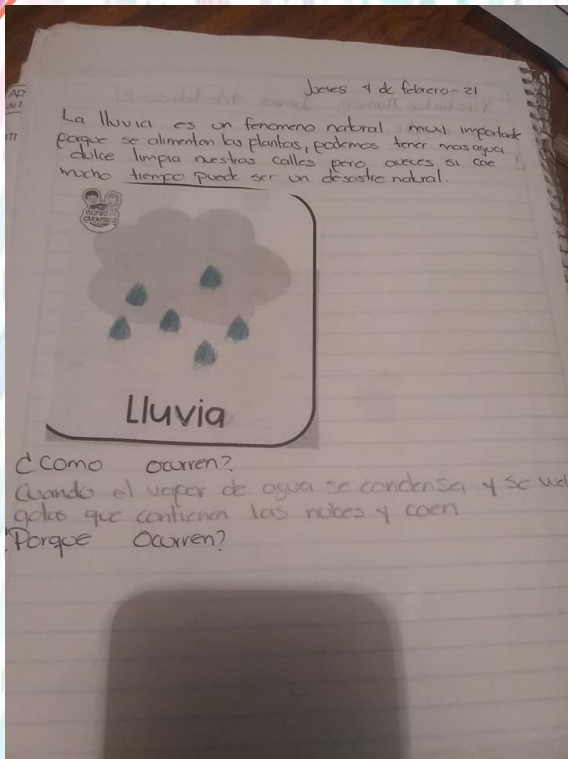 Jueves 4 de febrero-21
La lluvia es un fenomeno natural muy importante
porque se alimentan las plantas, podemos tener mas agua
dulce limpia nuestras calles pero aveces si cae
mucho tiempo puede ser un desastre natural.
Lluvia
¿Como ocurren?
Cuando el vapor de agua se condensa y se
gotas que contienen las nubes y caen
Porque Ocurren?